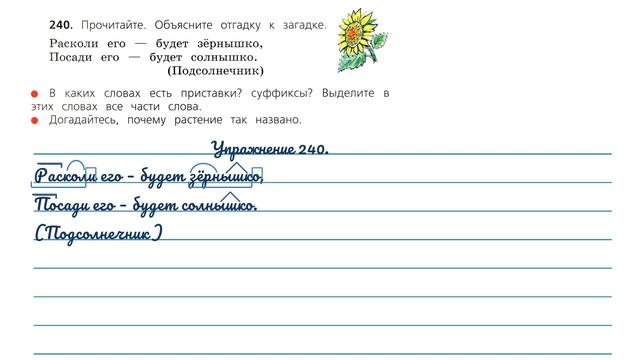 240. Прочитайте. Объясните отгадку к загадке.
Расколи его — будет зёрнышко,
Посади его — будет солнышко.
(Подсолнечник)
В каких словах есть приставки? суффиксы? Выделите в
этих словах все части слова.
Догадайтесь, почему растение так названо.
Упражнение 240.
Расколи его – будет зёрнышко,
Посади его – будет солнышко.
(Подсолнечник)